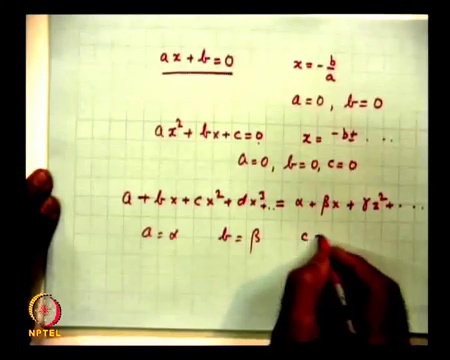 ax + b = 0 x = - b/a
a = 0, b = 0
ax² + bx + c = 0 x = -b± ...
a = 0, b = 0, c = 0
a + bx + cx² + dx³+.. = α + βx + γx² + ...
a = α b = β c =
NPTEL